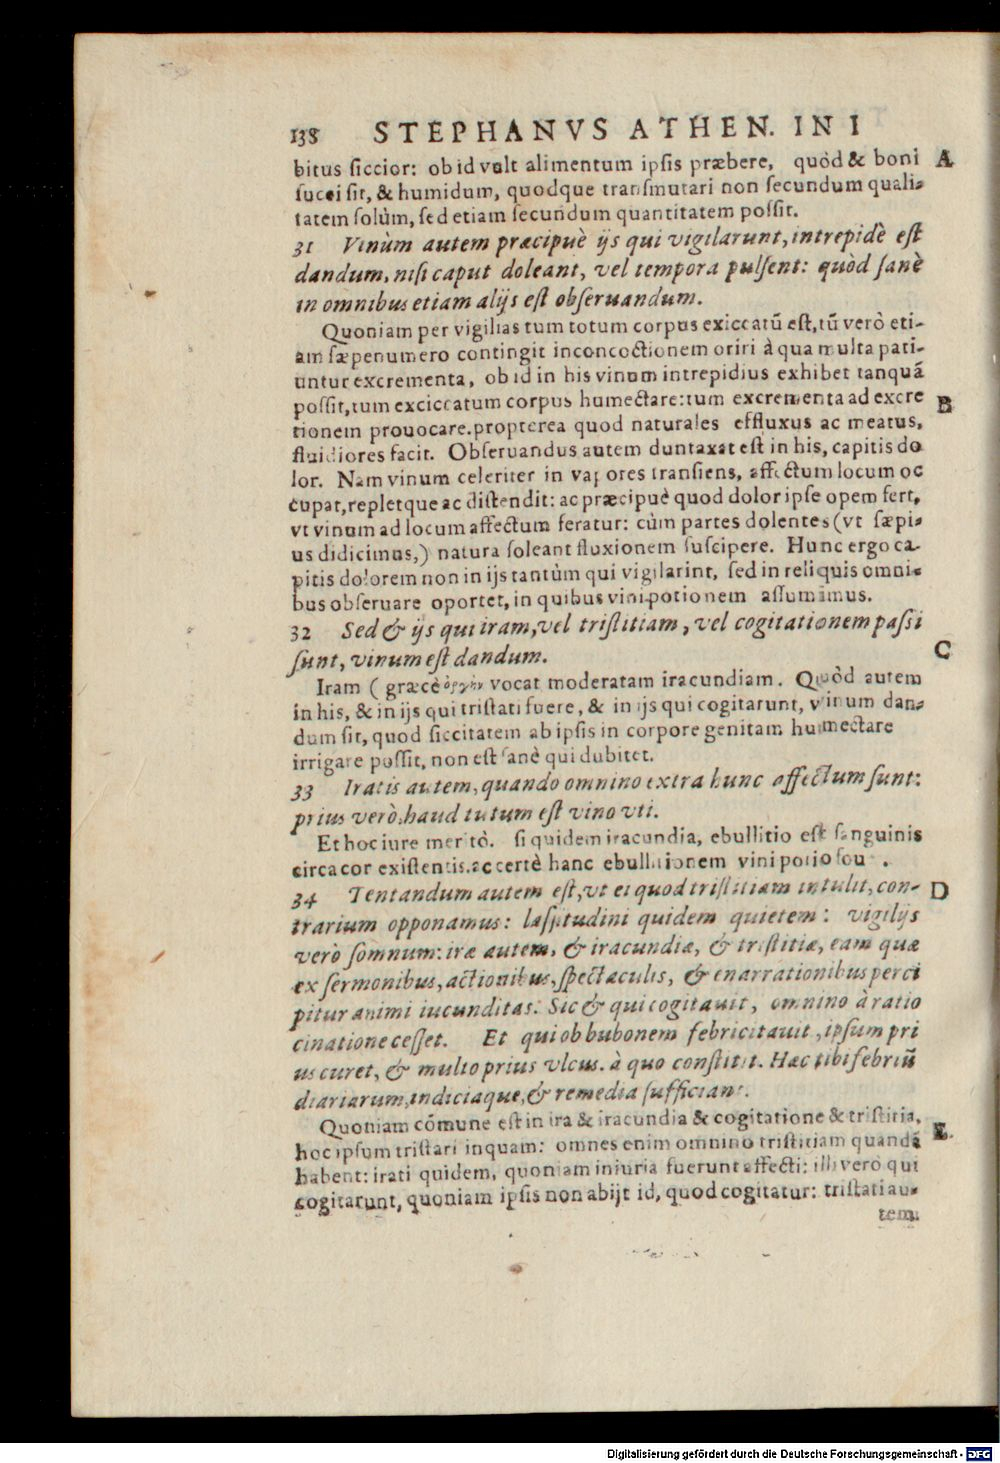 138 STEPHANVS ATHEN. IN I
bitus ſiccior: ob id vult alimentum ipſis præbere, quòd & boni A
ſucci ſit, & humidum, quodque tranſmutari non ſecundum quali-
tatem ſolùm, ſed etiam ſecundum quantitatem poſſit.
31 Vinùm autem præcipuè ijs qui vigilarunt, intrepidè eſt
dandum, niſi caput doleant, vel tempora pulſent: quòd ſanè
in omnibus etiam alijs eſt obſeruandum.
Quoniam per vigilias tum totum corpus exiccatū eſt, tū verò eti-
am ſæpenumero contingit inconcoctionem oriri à qua multa pati-
untur excrementa, ob id in his vinum intrepidius exhibet tanquā
poſſit, tum exciccatum corpus humectare: tum excrementa ad excre B
tionem prouocare. propterea quod naturales effluxus ac meatus,
fluidiores facit. Obſeruandus autem duntaxat eſt in his, capitis do
lor. Nam vinum celeriter in vapores tranſiens, affectum locum oc
cupat, repletque ac diſtendit: ac præcipuè quod dolor ipſe opem fert,
vt vinum ad locum affectum feratur: cùm partes dolentes (vt ſæpi-
us didicimus,) natura ſoleant fluxionem ſuſcipere. Hunc ergo ca-
pitis dolorem non in ijs tantùm qui vigilarint, ſed in reliquis omni-
bus obſeruare oportet, in quibus vini potionem aſſumimus.
32 Sed & ijs qui iram, vel triſtitiam, vel cogitationem paſſi
ſunt, vinum eſt dandum. C
Iram (græcè ὀργὴν vocat moderatam iracundiam. Quòd autem
in his, & in ijs qui triſtati fuere, & in ijs qui cogitarunt, vinum dan-
dum ſit, quod ſiccitatem ab ipſis in corpore genitam humectare
irrigare poſſit, non eſt ſanè qui dubitet.
33 Iratis autem, quando omnino extra hunc affectum ſunt:
prius verò, haud tutum eſt vino vti.
Et hoc iure meritò. ſi quidem iracundia, ebullitio eſt ſanguinis
circa cor exiſtentis. ac certè hanc ebullitionem vini potio .
34 Tentandum autem eſt, vt ei quod triſtitiam intulit, con- D
trarium opponamus: laſſitudini quidem quietem: vigilijs
verò ſomnum: iræ autem, & iracundiæ, & triſtitiæ, eam quæ
ex ſermonibus, actionibus, ſpectaculis, & enarrationibus perci
pitur animi iucunditas. Sic & qui cogitauit, omnino à ratio
cinatione ceſſet. Et qui ob bubonem febricitauit, ipſum pri
us curet, & multo prius vlcus. à quo conſtitit. Hæc tibi febriū
diariarum, indiciaque, & remedia ſufficiant.
Quoniam cōmune eſt in ira & iracundia & cogitatione & triſtitia,
hoc ipſum triſtari inquam: omnes enim omnino triſtitiam quandā E.
habent: irati quidem, quoniam iniuria fuerunt affecti: illi verò qui
cogitarunt, quoniam ipſis non abijt id, quod cogitatur: triſtati au-
tem
Digitalisierung gefördert durch die Deutsche Forschungsgemeinschaft - DFG